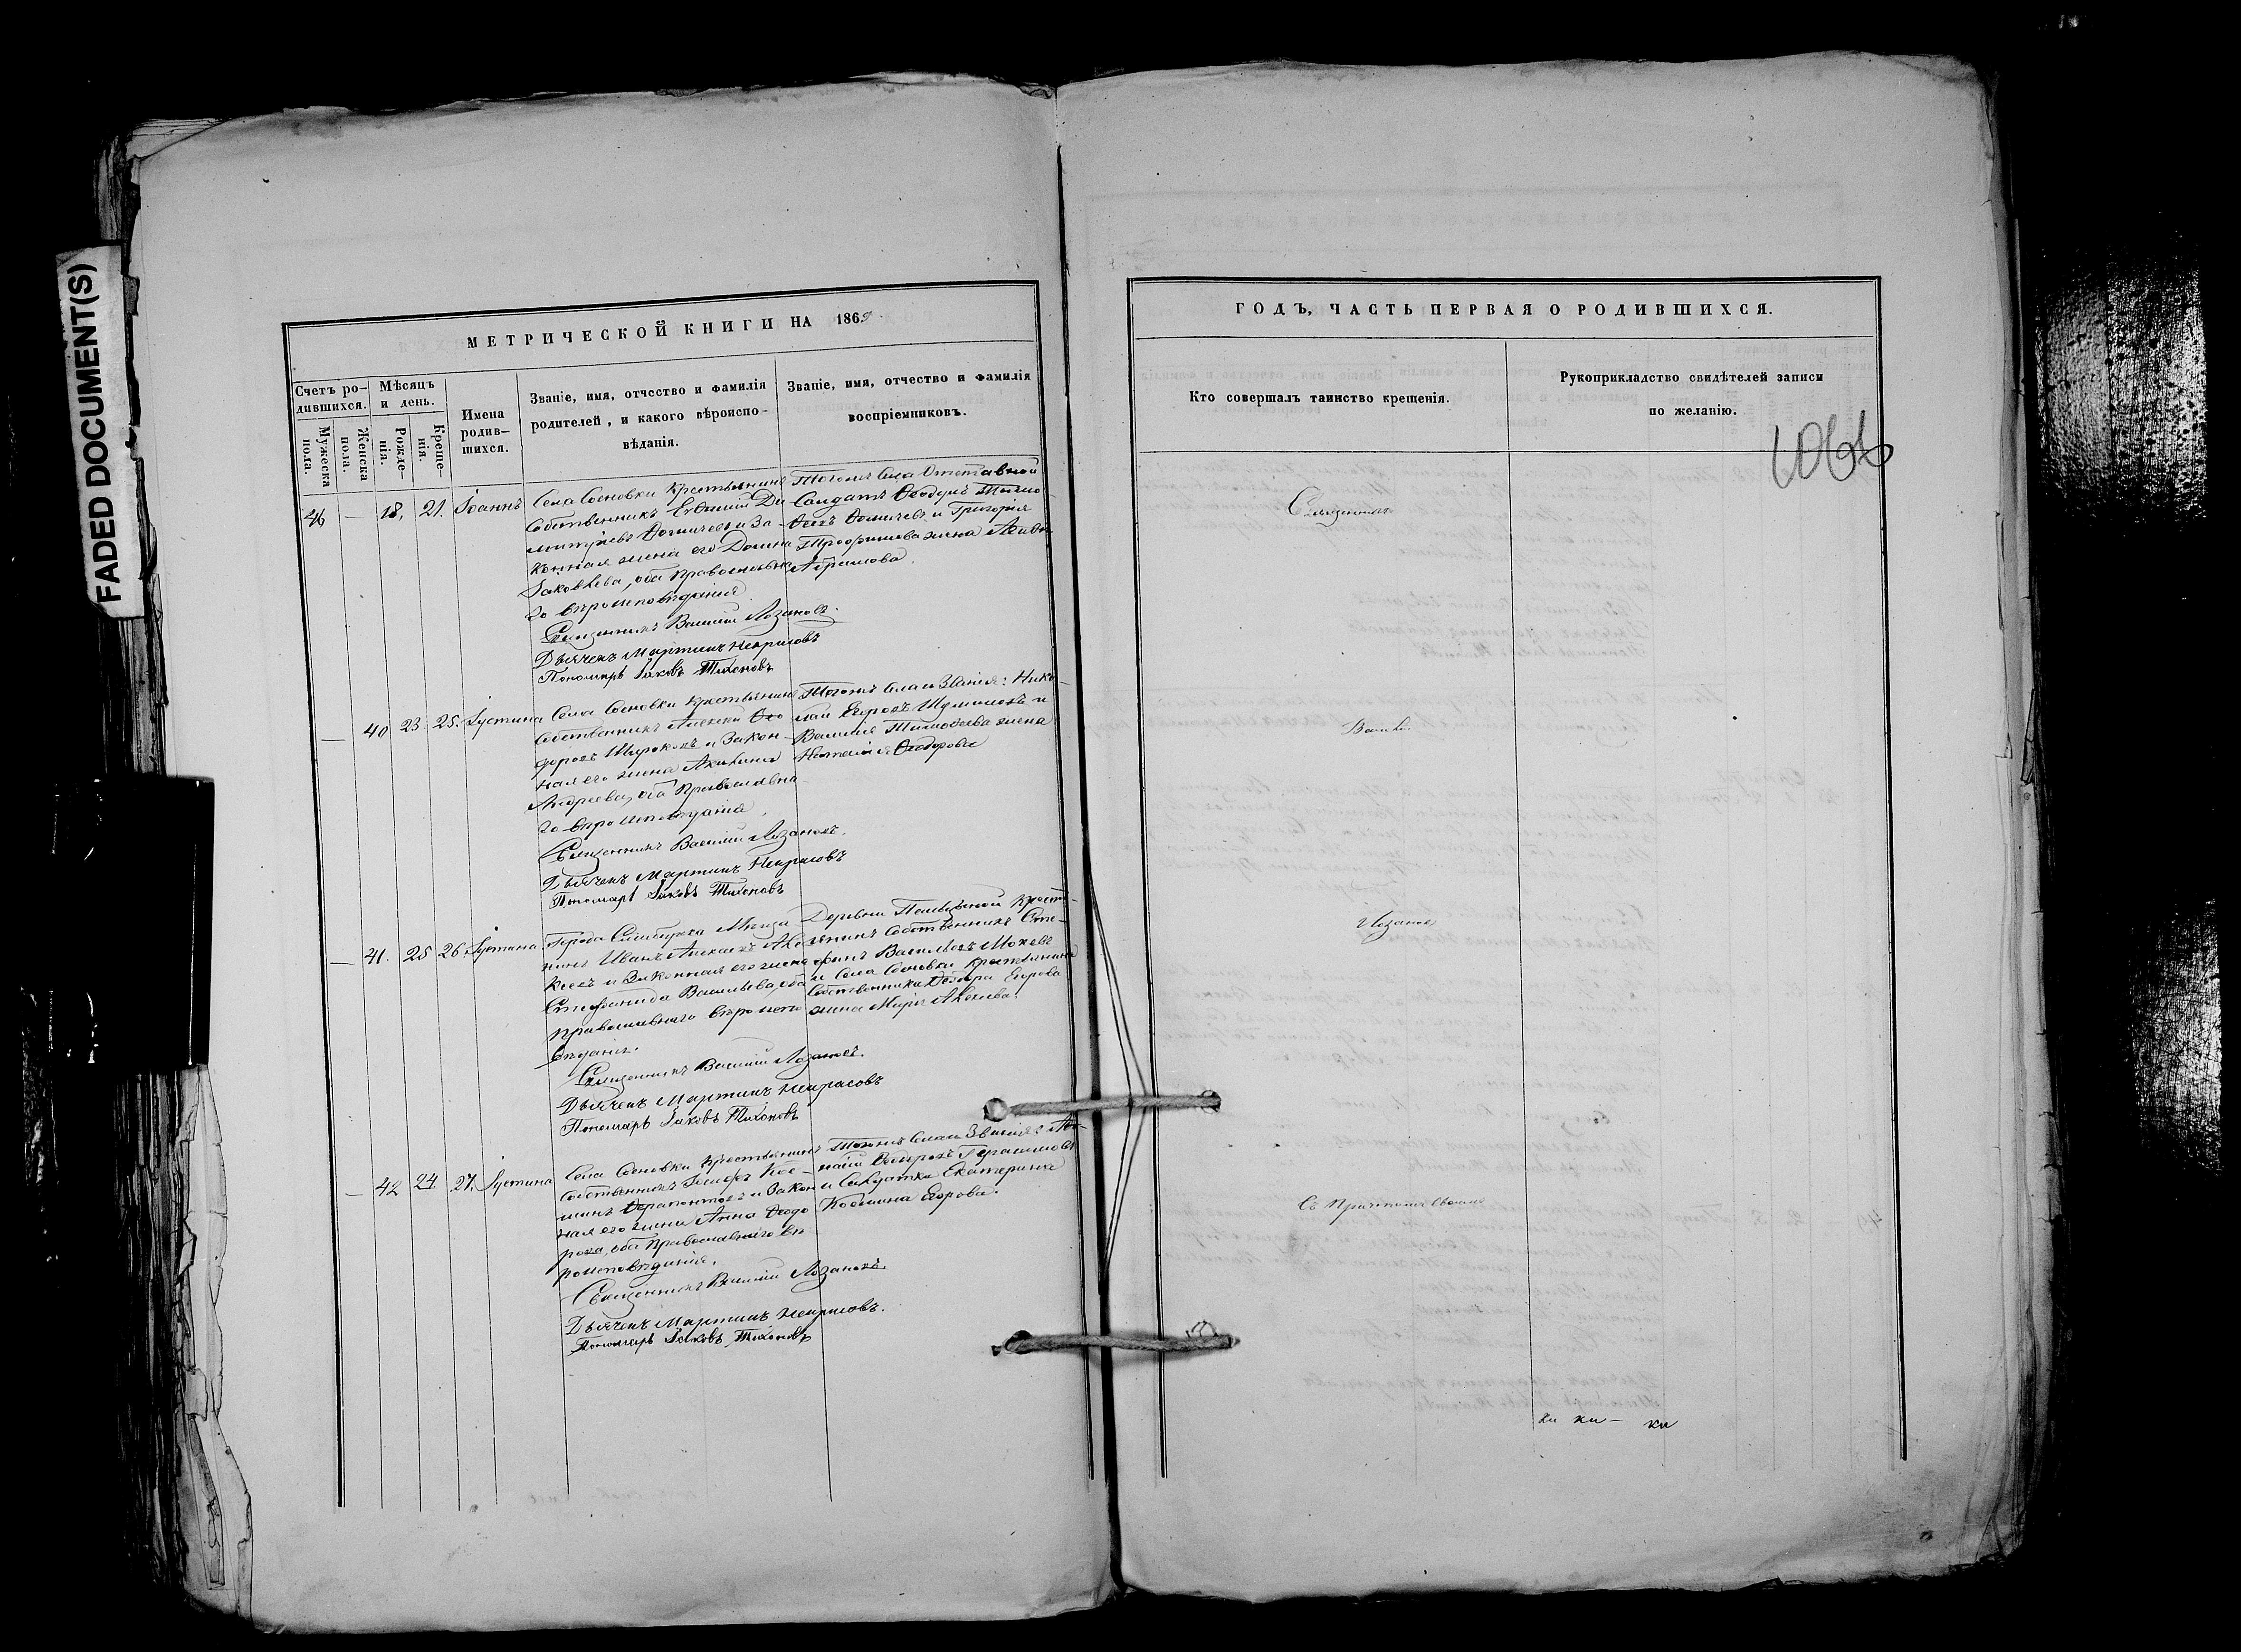 FADED DOCUMENT(S)
МЕТРИЧЕСКОЙ КНИГИ НА 1869
Счетъ ро-
дившихся.
Мужеска
пола.
Женска
пола.
Мѣсяцъ
и день.
Рожде-
нія.
Креще-
нія.
Имена
родив-
шихся.
Званіе, имя, отчество и фамилія
родителей, и какого вѣроиспо-
вѣданія.
Званіе, имя, отчество и фамилія
воспріемниковъ.
46 — 18. 21. Іоаннъ
Села Сосновки Крестьянинъ
Собственникъ Евѳимій Ди-
митріевъ и За-
конная жена его Домна
Іаковлева, оба Православна-
го вѣроисповѣданія
Священникъ Василій Лозановъ.
Дьячекъ Мартинъ Некрасовъ
Пономарь Іаковъ Тихоновъ
Тогожъ Села Отставной
Солдатъ Ѳеодоръ Тимо-
ѳеевъ и Григорія
Трофимова жена
Абрамова.
— 40 23. 25. Іустина
Села Сосновки Крестьянинъ
Собственникъ Алексѣй Ѳео-
доровъ Широковъ и Закон-
ная его жена Акилина
Андреева, оба Православна-
го вѣроисповѣданія.
Священникъ Василій Лозановъ.
Дьячекъ Мартинъ Некрасовъ
Пономарь Іаковъ Тихоновъ
Тогожъ Села и Званія: Нико-
лай Егоровъ и
Василія Тимоѳеева жена
Наталія Ѳеодорова
— 41. 25 26. Іустина
Города Симбирска Мѣща-
нинъ Иванъ Алексѣевъ
и Законная его жена
Стефанида Васильева, оба
Православнаго вѣроиспо-
вѣданія.
Священникъ Василій Лозановъ.
Дьячекъ Мартинъ Некрасовъ
Пономарь Іаковъ Тихоновъ
Деревни Крестья-
янинъ Собственникъ Сте-
фанъ Васильевъ
и Села Сосновки Крестьянина
Собственника Ѳеодора Егорова
жена Марѳа
— 42 24. 27. Іустина
Села Сосновки Крестьянинъ
Собственникъ Іосифъ Кос-
минъ Ѳерапонтовъ и Закон-
ная его жена Анна Ѳеодо-
рова, оба Православнаго вѣ-
роисповѣданія.
Священникъ Василій Лозановъ.
Дьячекъ Мартинъ Некрасовъ.
Пономарь Іаковъ Тихоновъ
Тогожъ Села и Званія:
Ѳеодоровъ Герасимовъ
и Солдатка Екатерина
Космина Егорова.
ГОДЪ, ЧАСТЬ ПЕРВАЯ О РОДИВШИХСЯ.
Кто совершалъ таинство крещенія.
Рукоприкладство свидѣтелей записи
по желанію.
Священникъ
Василій
Лозановъ
Съ Причтомъ Своимъ